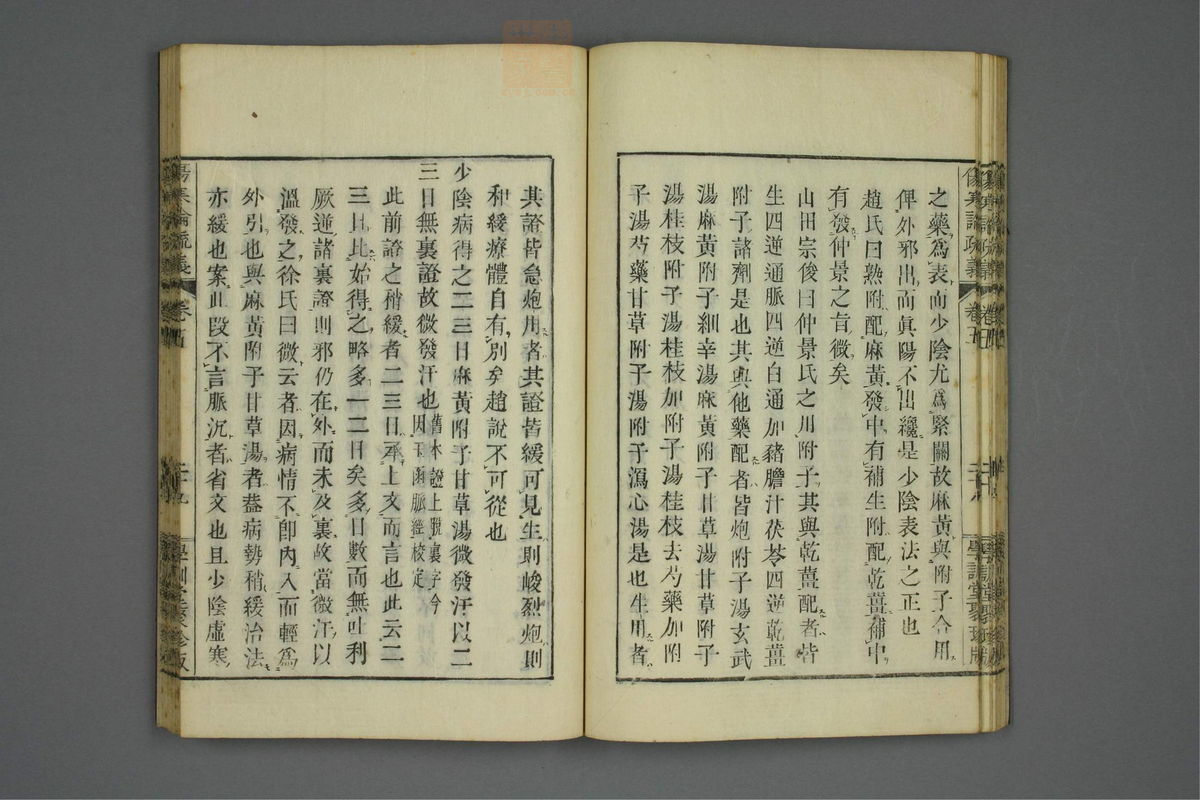 之藥爲表而少陰尤爲緊關故麻黃與附子合用
俾外邪出而眞陽不出纔是少陰表法之正也
趙氏曰熟附配麻黃發中有補生附配乾薑補中
有發仲景之旨微矣
山田宗俊曰仲景氏之用附子其與乾薑配者皆
生四逆通脈四逆白通加豬膽汁茯苓四逆乾薑
附子諸劑是也其與他藥配者皆炮附子湯玄武
湯麻黃附子細辛湯麻黃附子甘草湯甘草附子
湯桂枝附子湯桂枝加附子湯桂枝去芍藥加附
子湯芍藥甘草附子湯附子瀉心湯是也生用者
傷寒論疏義
卷五
學訓堂聚珍版
其證皆急炮用者其證皆緩可見生則峻烈炮則
和緩療體自有別矣趙說不可從也
少陰病得之二三日麻黃附子甘草湯微發汗以二
三日無裏證故微發汗也
舊本證上脫裏字今
因玉函脈經校定
此前證之稍緩者二三日承上文而言也此云二
三日比始得之略多一二日矣多日數而無吐利
厥逆諸裏證則邪仍在外而未及裏故當微汗以
溫發之徐氏曰微云者因病情不卽內入而輕爲
外引也與麻黃附子甘草湯者蓋病勢稍緩治法
亦緩也案此段不言脈沉者省文也且少陰虛寒
傷寒論疏義
卷五
二十九
學訓堂聚珍版